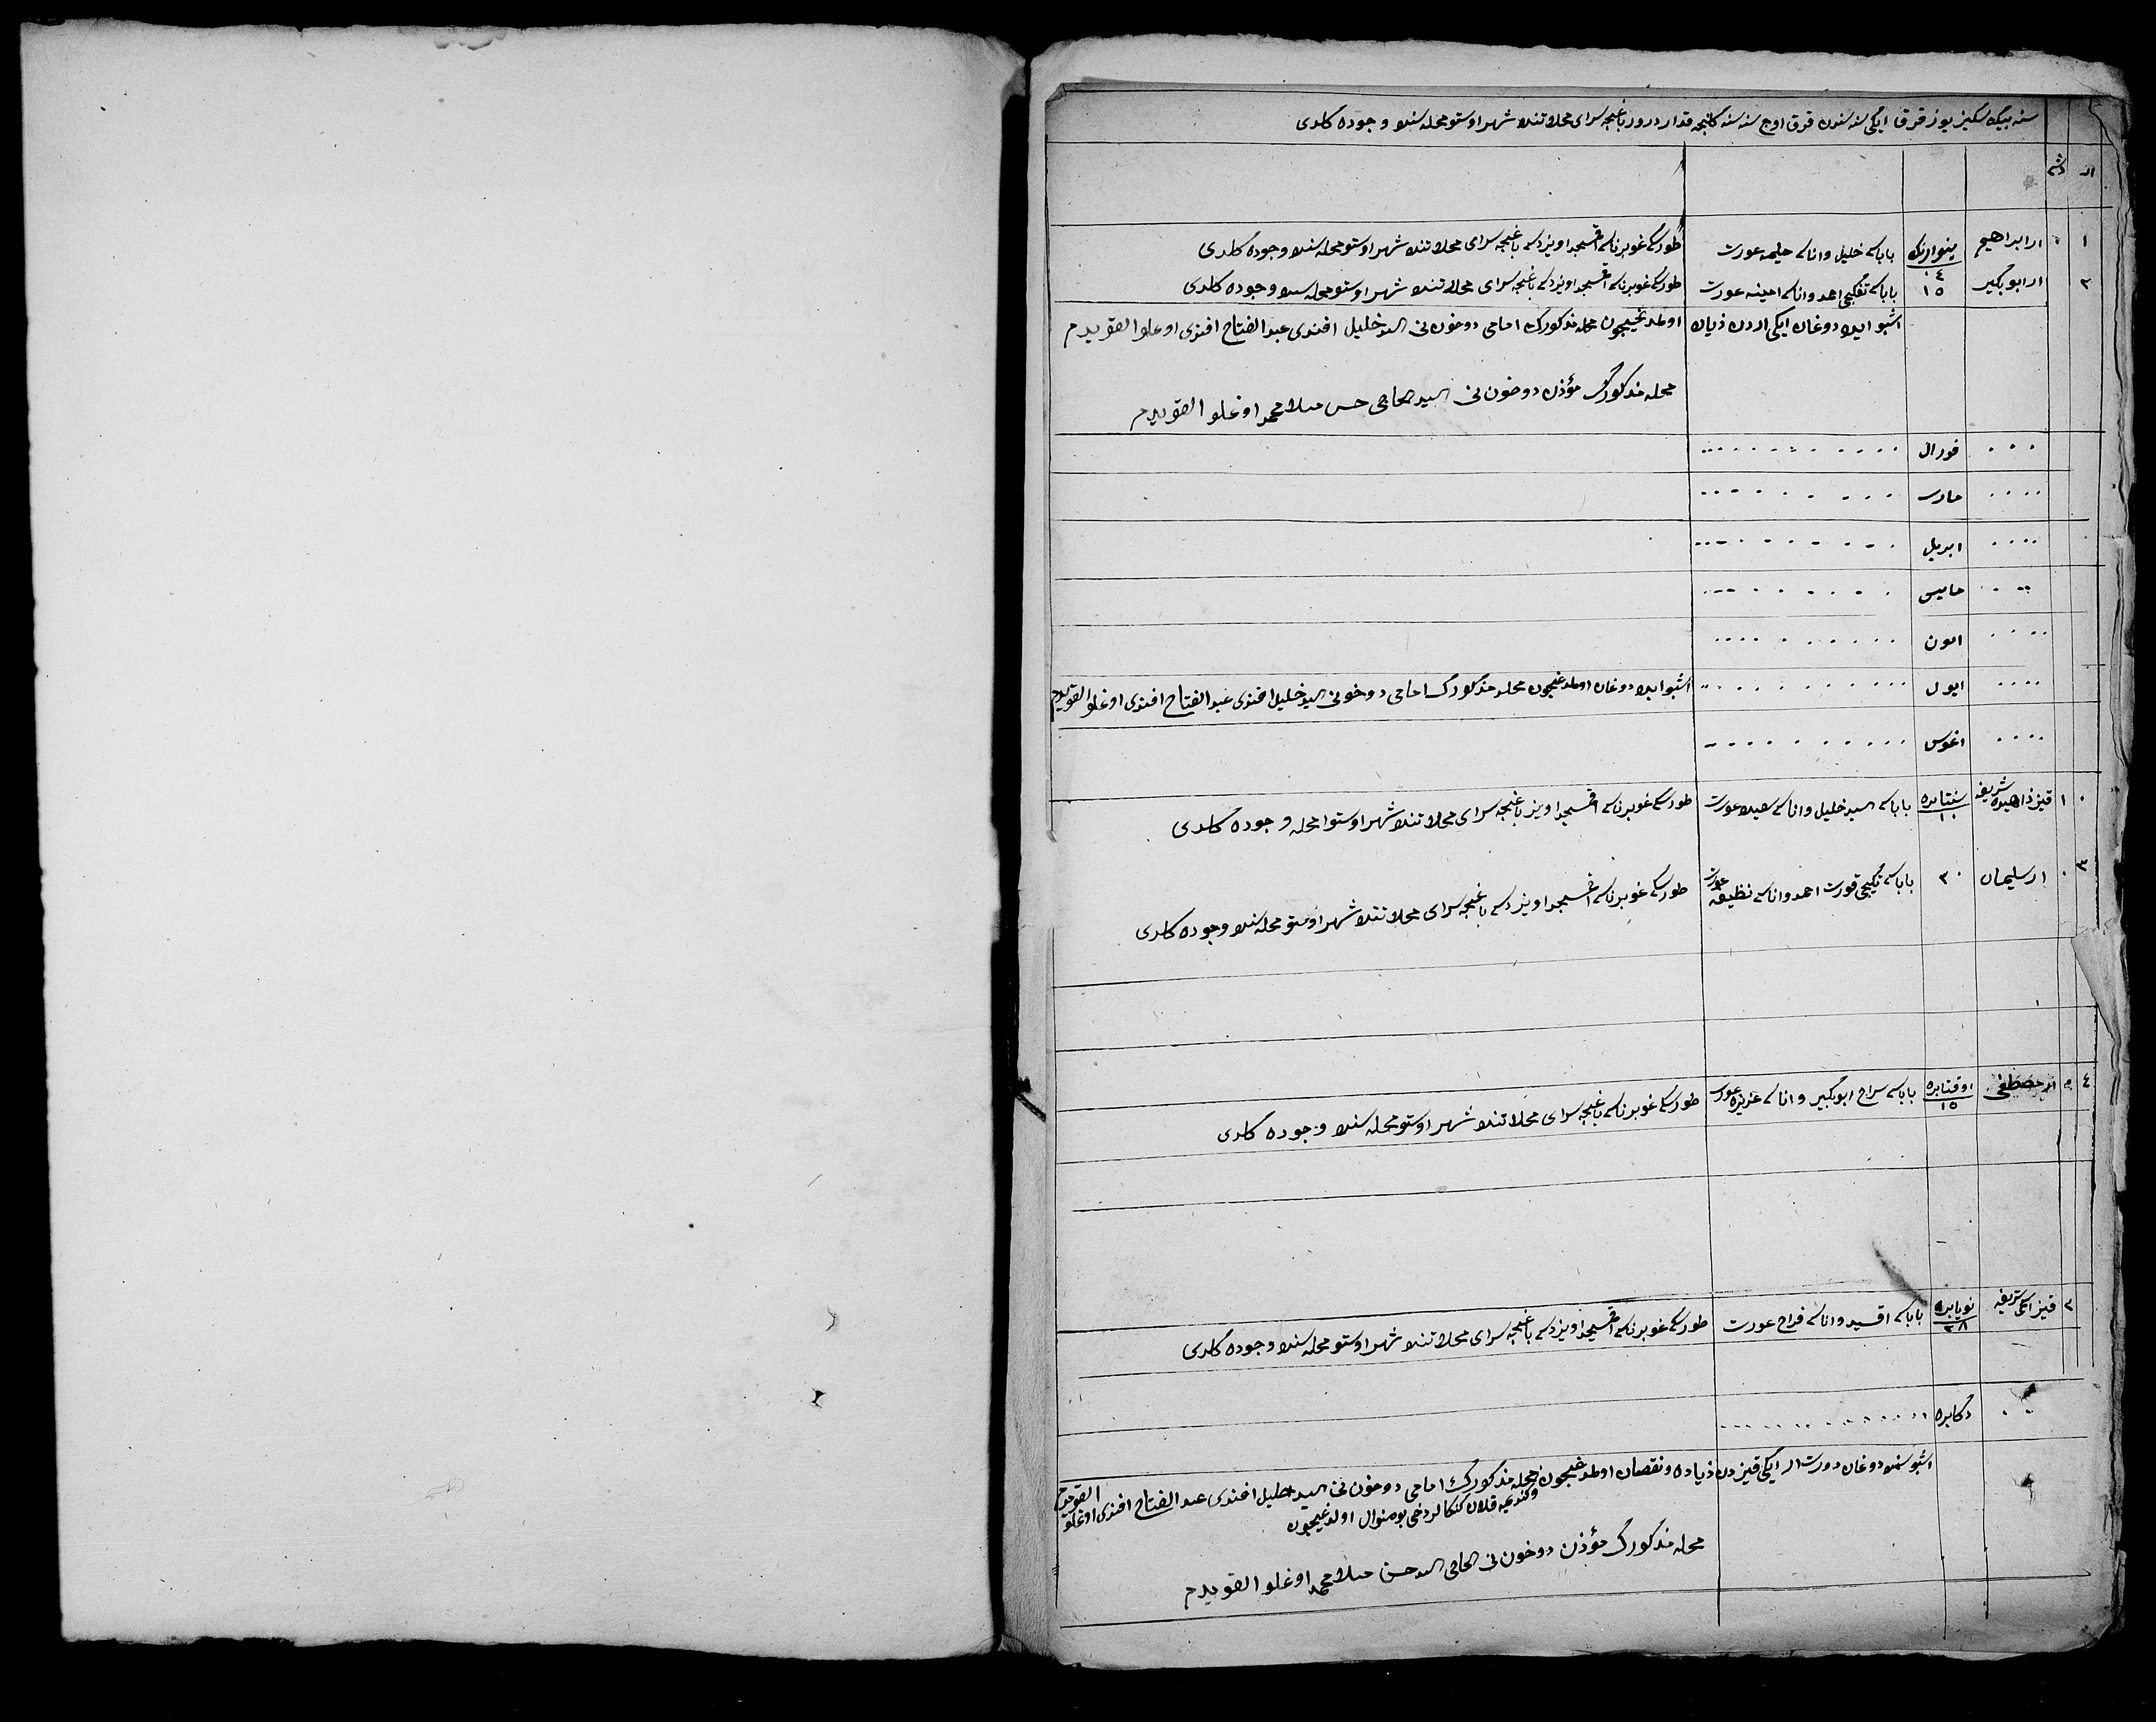 سنه بیڭ سکیز یوز قرق ایکی سنه سندن قرق اوچ سنه سنه کلنجه قدار درور باغچه سرای محلاتنده شهر اوستو محله سنده وجوده کلدی
ار دشه
١ ار ابراهیم ینوارنڭ ١٤ باباسی خلیل واناسی حلیمه عورت طورسکی غوبرناسی اقمسجد اویزدسی باغچه سرای محلاتنده شهر اوستو محله سنده وجوده کلدی
٢ ار ابوبکیر ١٥ باباسی تفکچی احمد واناسی امینه عورت طورسکی غوبرناسی اقمسجد اویزدسی باغچه سرای محلاتنده شهر اوستو محله سنده وجوده کلدی
اشبو ایده دوغان ایکی اردن ذیاده اولمدیغیچون محله مذکورڭ امامی دوخونی السید خلیل افندی عبدالفتاح افندی اوغلو القویدم
محله مذکورڭ مؤذن دوخونی السید الحاجی حسن منلا محمد اوغلو القویدم
فورال
مارت
اپریل
مایس
ایون
ایول اشبو ایده دوغان اولمدیغیچون محله مذکورڭ امامی دوخونی السید خلیل افندی عبدالفتاح افندی اوغلو القویدم
اغوس
١ قیز زاهیده شریفه سنتابره ١٠ باباسی السید خلیل واناسی عورت طورسکی غوبرناسی اقمسجد اویز باغچه سرای محلاتنده شهر اوستو محله وجوده کلدی
٣ ار سلیمان ٢٠ باباسی قورت احمد واناسی نظیفه عورت طورسکی غوبرناسی اقمسجد اویزدسی باغچه سرای محلاتنده شهر اوستو محله سنده وجوده کلدی
٤ ار مصطفی اوقتابره ١٥ باباسی سراج ابوبکیر واناسی عزیزه عورت طورسکی غوبرناسی باغچه سرای محلاتنده شهر اوستو محله سنده وجوده کلدی
٢ قیز شریفه نویابره ٢٨ باباسی اقسید واناسی عورت طورسکی غوبرناسی اقمسجد اویزدسی باغچه سرای محلاتنده شهر اوستو محله سنده وجوده کلدی
دکابره
اشبو سنه ده دوغان دورت ار ایکی قیزدن ذیاده ونقصان اولمدیغیچون محله مذکورڭ امامی دوخونی السید خلیل افندی عبدالفتاح افندی اوغلو القویدم
بو منوال اولدیغیچون
محله مذکورڭ مؤذن دوخونی الحاجی السید حسن منلا محمد اوغلو القویدم